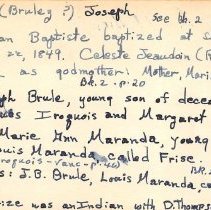 (Brulez ?) Joseph see Bk. 2
an Baptiste baptized at S
22, 1849. Celeste Jeaudoin (R
as godmother: Mother, Mari
BK.2 - p.20
ph Brule, young son of dece
was Iroquois and Margaret
Marie Ann Maranda, young
ouis Maranda, called Frise.
roquois - Vanc - p.
s: J.B. Brule, Louis Maranda
ize was an Indian with D. Thomps